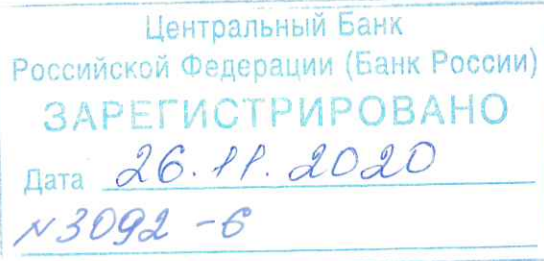 Центральный Банк
Российской Федерации (Банк России)
ЗАРЕГИСТРИРОВАНО
Дата 26.11.2020
№3092-6